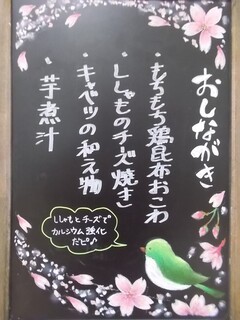 おしながき
・もちもち鶏昆布おこわ
・ししゃものチーズ焼き
・キャベツの和え物
・芋煮汁
ししゃもとチーズで
カルシウム強化
だピ♪